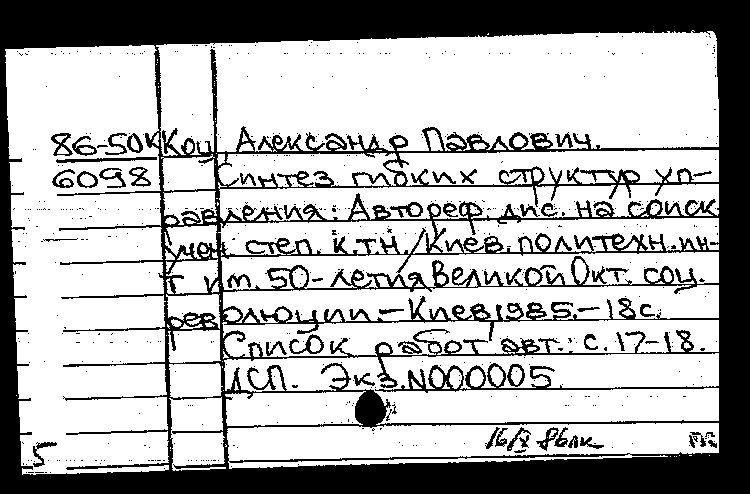 86-50К Коц, Александр Павлович.
6098 Синтез гибких структур уп-
равления: Автореф. дис. на соиск.
учен. степ. к.т.н. / Киев. политехн. ин-
т им. 50-летия Великой Окт. соц.
революции. - Киев, 1985. - 18 с.
Список работ авт.: с. 17-18.
ДСП. Экз. N000005.
16/X 86лк
5